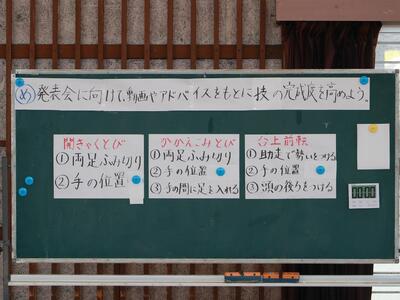 め 発表会に向けて、動画やアドバイスをもとに技の完成度を高めよう。
開きゃくとび
①両足ふみ切り
②手の位置
かかえこみとび
①両足ふみ切り
②手の位置
③手の間に足を入れる
台上前転
①助走で勢いをつける
②手の位置
③頭の後ろをつける
00:00